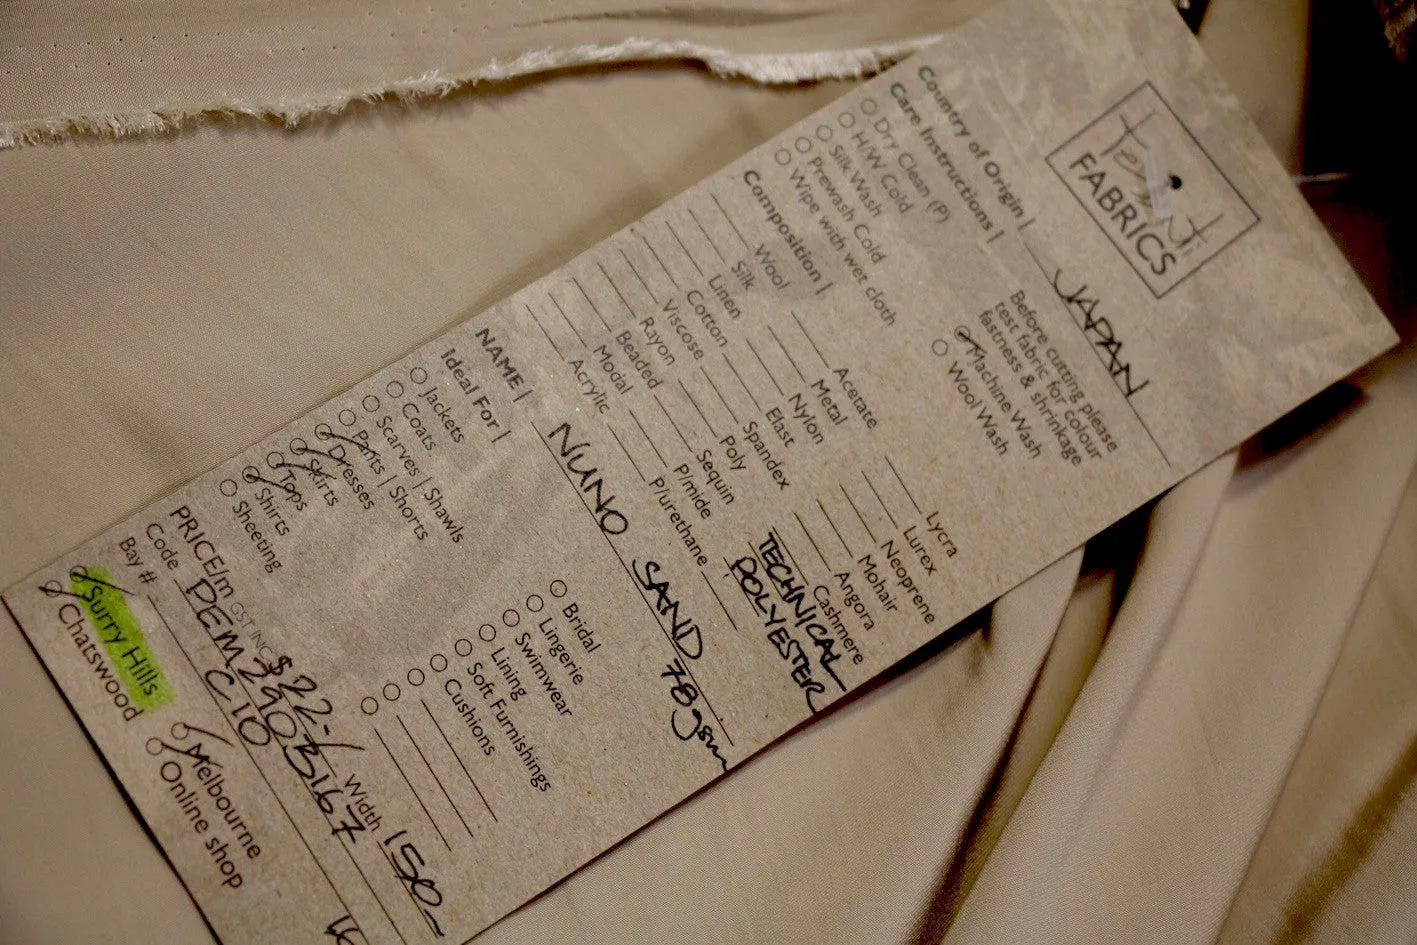 Tessuti
FABRICS
Country of Origin | JAPAN
Care Instructions |
Dry Clean (P)
H/W Cold
Silk Wash
Prewash Cold
Wipe with wet cloth
Before cutting please
test fabric for colour
fastness & shrinkage
Machine Wash
Wool Wash
Composition |
Wool
Silk
Linen
Cotton
Viscose
Rayon
Beaded
Modal
Acrylic
Acetate
Metal
Nylon
Elast
Spandex
Poly
Sequin
P/mide
P/urethane
Lycra
Lurex
Neoprene
Mohair
Angora
Cashmere
TECHNICAL
POLYESTER
NAME | NUNO SAND 78gsm
Ideal For |
Jackets
Coats
Scarves | Shawls
Pants | Shorts
Dresses
Skirts
Tops
Shirts
Sheeting
Bridal
Lingerie
Swimwear
Lining
Soft Furnishings
Cushions
PRICE/m GST INC $22-/ Width 150
Code DEM290B167
Bay # C10
Surry Hills
Chatswood
Melbourne
Online shop